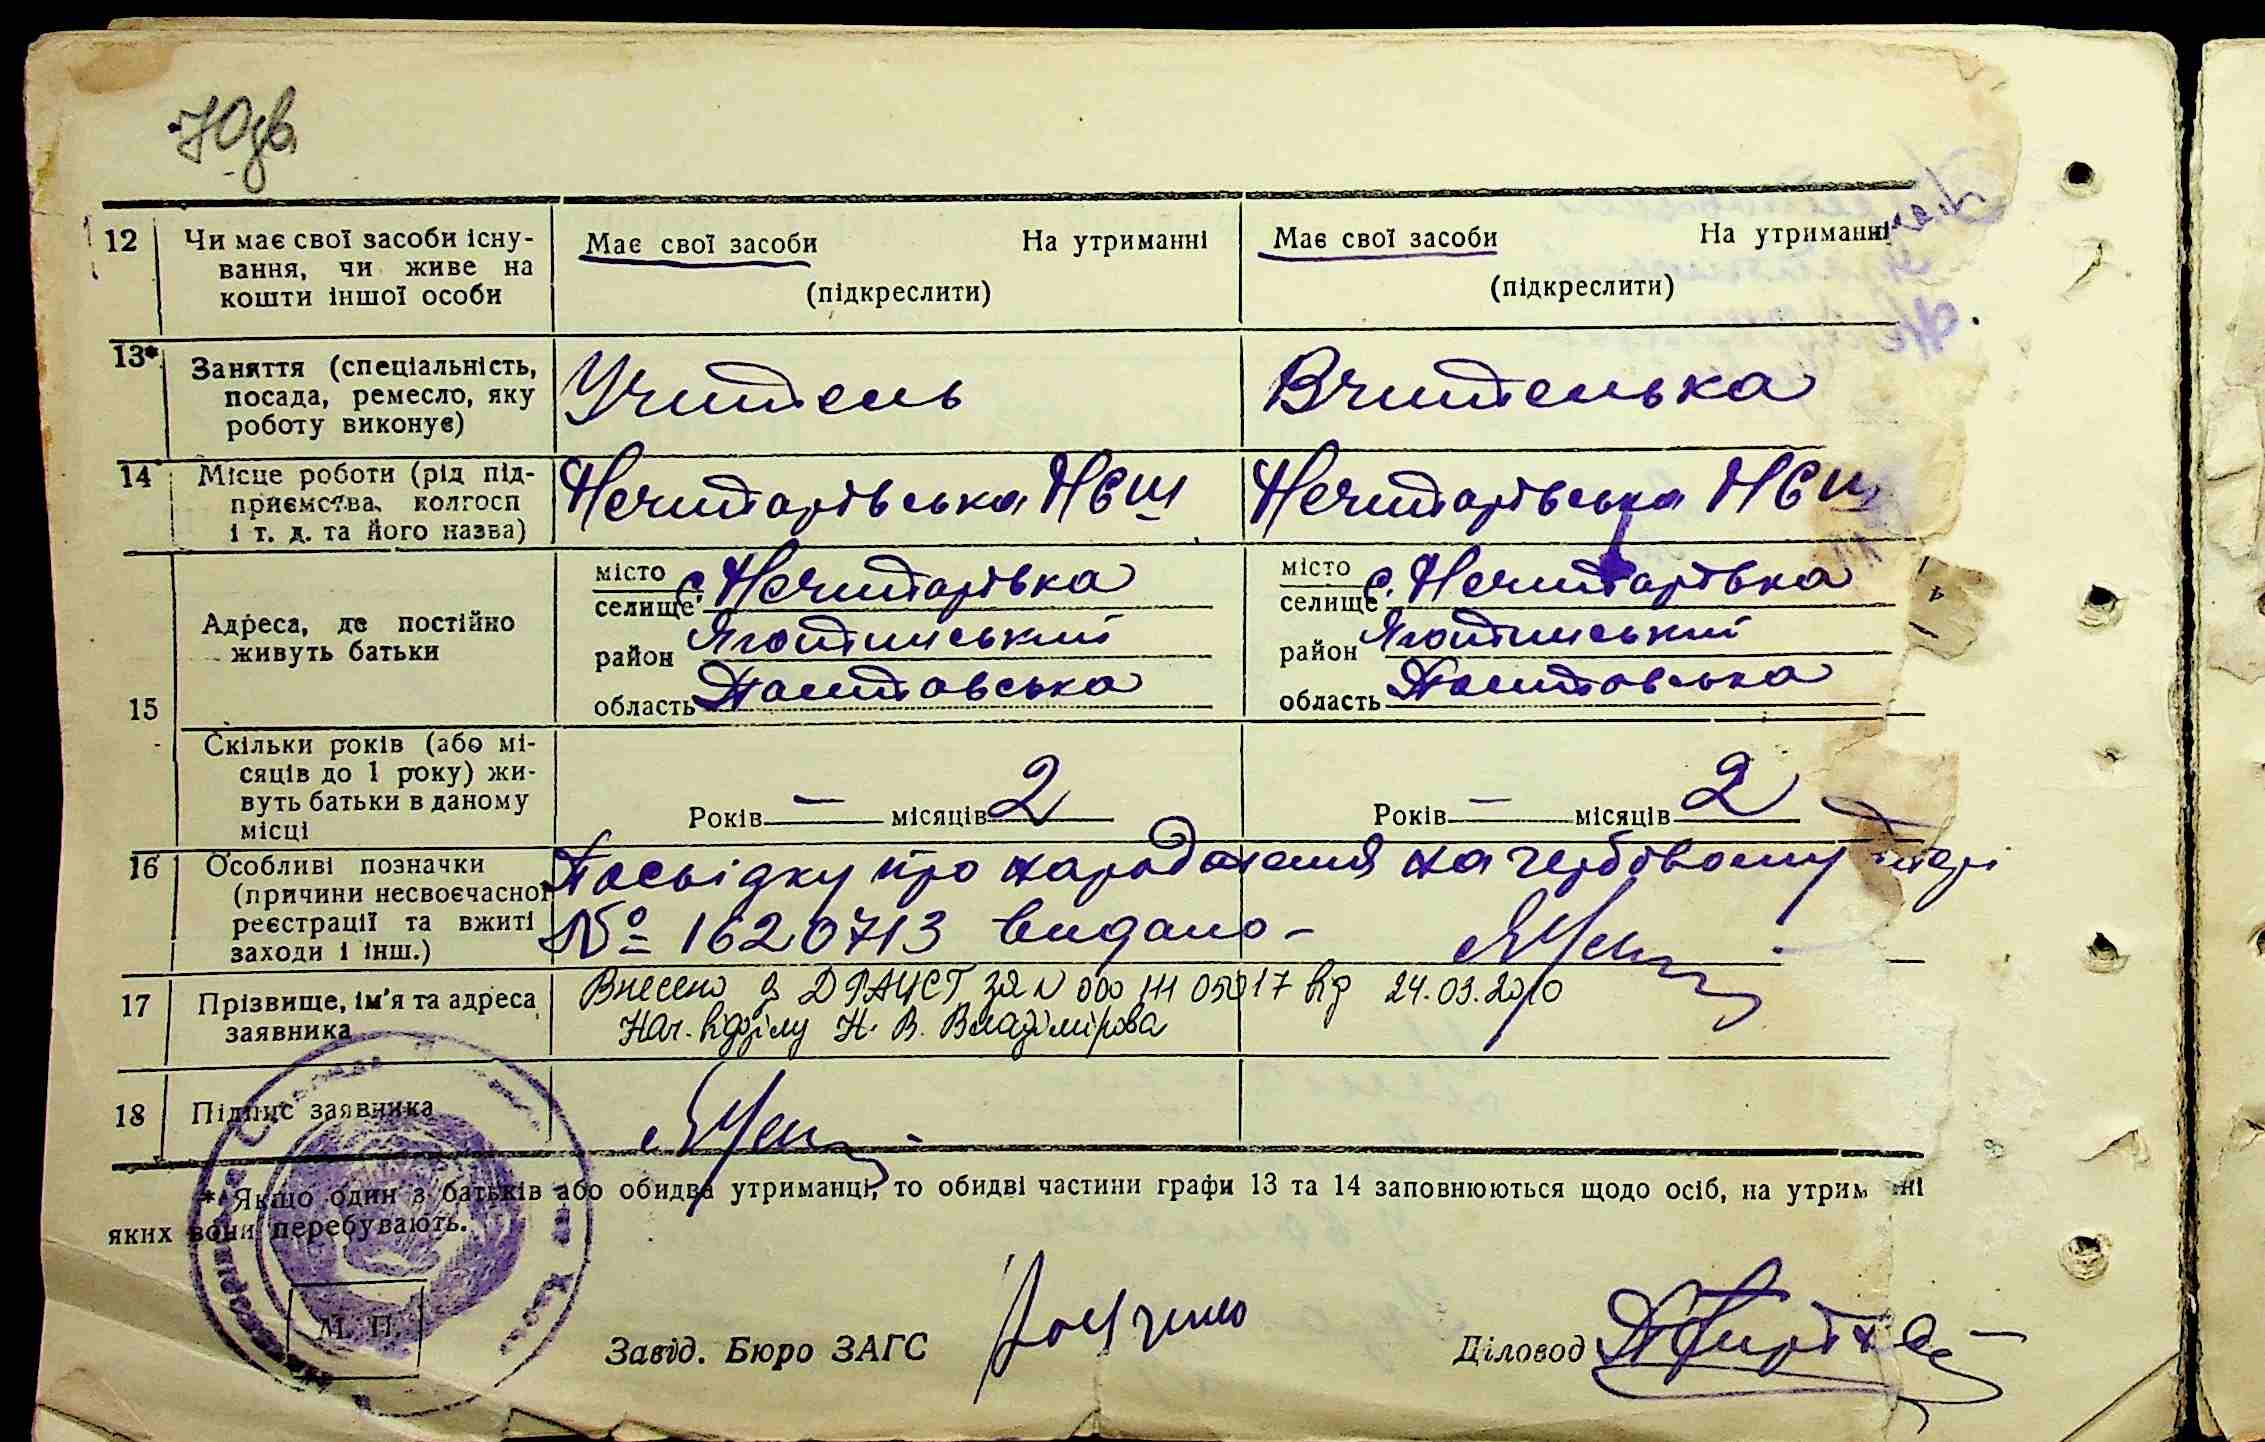 12 Чи має свої засоби існу-
вання, чи живе на
кошти іншої особи
Має свої засоби На утриманні
(підкреслити)
Має свої засоби На утриманні
(підкреслити)
13* Заняття (спеціальність,
посада, ремесло, яку
роботу виконує)
Учитель
Вчителька
14* Місце роботи (рід під-
приємства, колгосп
і т. д. та його назва)
Нечипорівська НСШ
Нечипорівська НСШ
15
Адреса, де постійно
живуть батьки
місто
селище с. Нечипорівка
район Яготинський
область Полтавська
місто
селище с. Нечипорівка
район Яготинський
область Полтавська
Скільки років (або мі-
сяців до 1 року) жи-
вуть батьки в даному
місці
Років — місяців 2
Років — місяців 2
16 Особливі позначки
(причини несвоєчасної
реєстрації та вжиті
заходи і інш.)
Посвідку про народження на гербовому папері
№ 1620713 видано –
17 Прізвище, ім'я та адреса
заявника
Внесено в ДРАЦСГ за N 000 111 05017 від 24.03.2010
Нач. відділу Н. В. Владімірова
18 Підпис заявника
* Якщо один з батьків або обидва утриманці, то обидві частини графи 13 та 14 заповнюються щодо осіб, на утриманні
яких вони перебувають.
М. П.
Завід. Бюро ЗАГС
Діловод